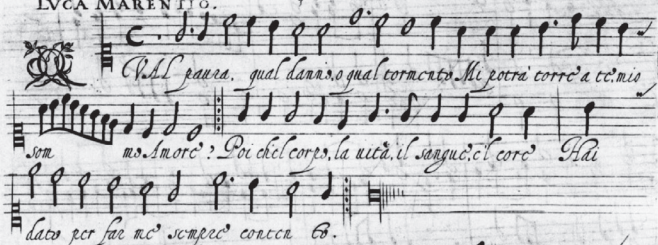 LVCA MARENTIO.
QVAL paura, qual danno, o qual tormento Mi potrà torre a te, mio
som mo Amore? Poi che'l corpo, la uità, il sangue, e'l core Hai
dato per far me sempre conten to.